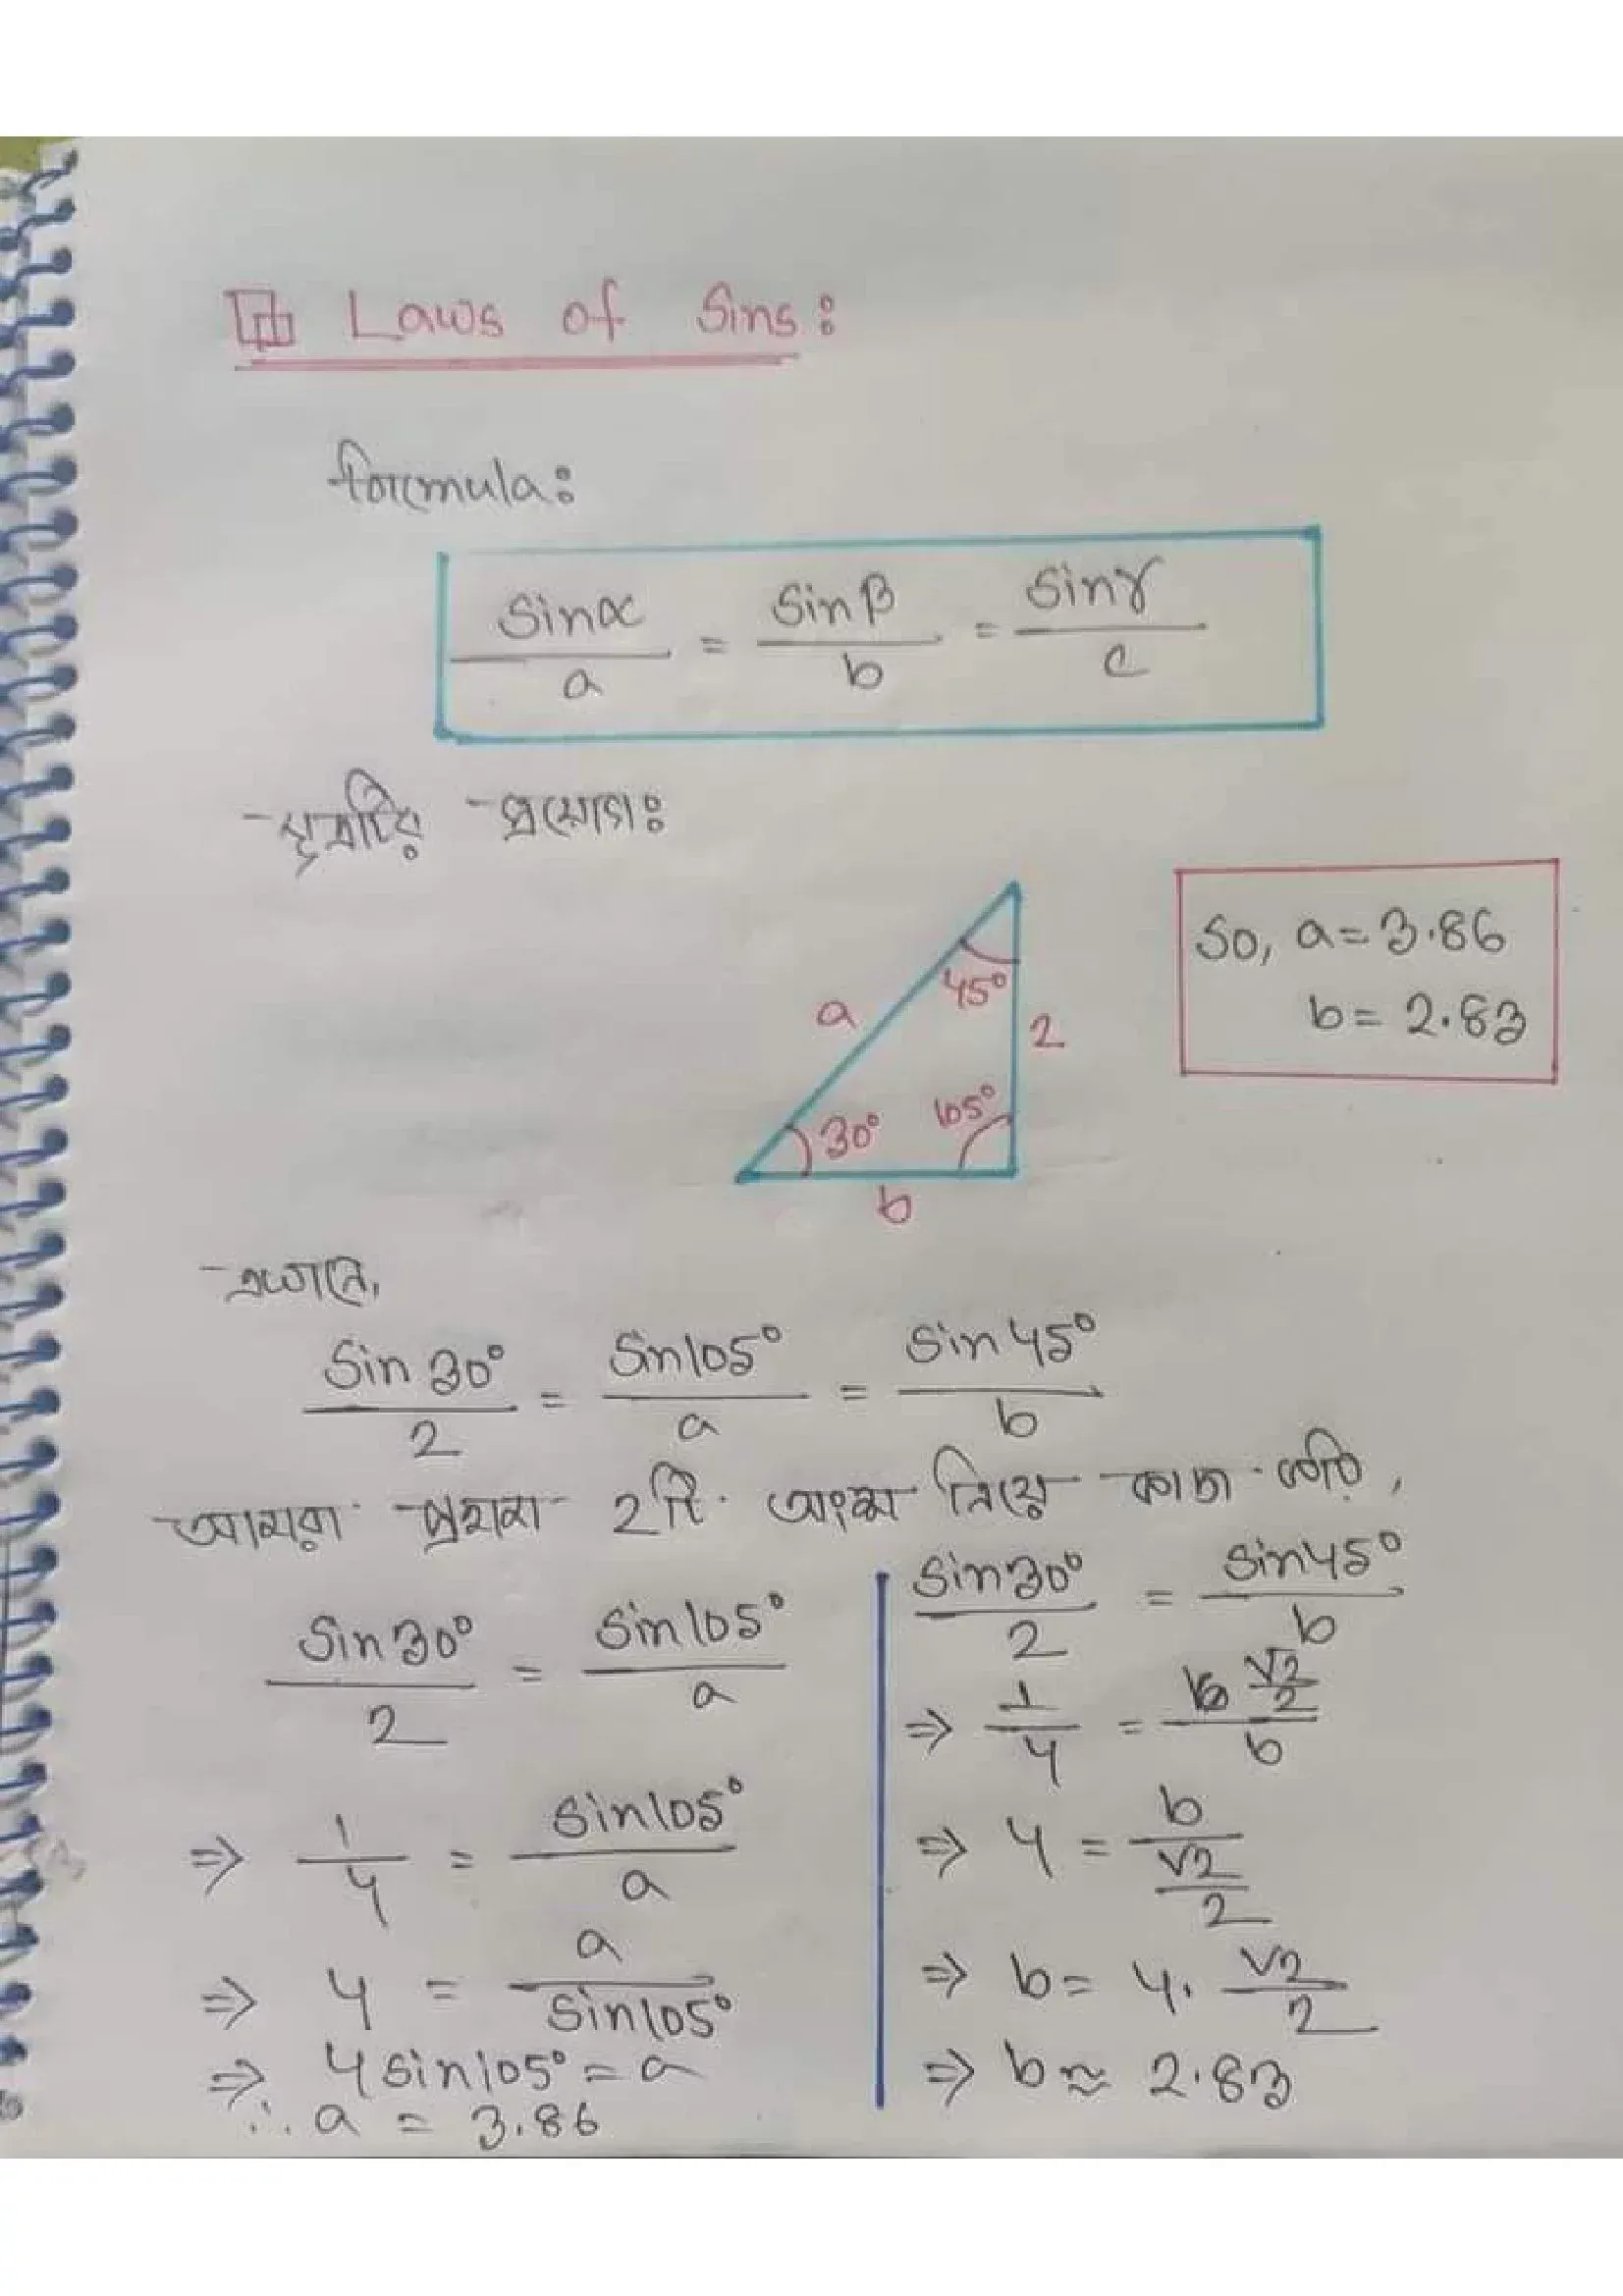 Laws of Sins:
formula:
sinα/a = sinβ/b = sinγ/c
সূত্রটির প্রয়োগঃ
a
45°
2
30°
105°
b
so, a=3.86
b= 2.83
এখানে,
sin 30°/2 = sin105°/a = sin 45°/b
আমরা প্রথম 2টি অংশ নিয়ে কাজ করি,
sin30°/2 = sin105°/a
⇒ 1/4 = sin105°/a
⇒ 4 = a/sin105°
⇒ 4sin105° = a
∴ a = 3.86
sin30°/2 = sin45°/b
⇒ 1/4 = √2/2/b
⇒ 4 = b/√2/2
⇒ b = 4. √2/2
⇒ b ≈ 2.83